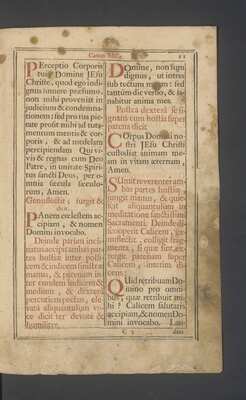 Canon Missæ.
11
PErceptio Corporis
tui, Domine JEsu
Christe, quod ego indi-
gnus sumere præsumo,
non mihi proveniat in
judicium & condemna-
tionem: sed pro tua pie-
tate prosit mihi ad tuta-
mentum mentis & cor-
poris, & ad medelam
percipiendam Qui vi-
vis & regnas cum Deo
Patre, in unitate Spiri-
tus sancti Deus, per o-
mnia secula seculo-
rum, Amen.
Genuflectit, surgit &
dicit.
PAnem cælestem ac-
cipiam, & nomen
Domini invocabo.
Deinde parum incli-
natus accipit ambas par-
tes hostiæ inter polli-
cem & indicem sinistræ
manus, & patenam in-
ter eundem indicem &
medium, & dextera
percutiens pectus, ele-
vata aliquantulum vo-
ce dicit ter devote &
humiliter.
DOmine, non sum
dignus, ut intres
sub tectum meum: sed
tantum dic verbo, & sa-
nabitur anima mea.
Postea dextera se si-
gnans cum hostia super
patenam dicit
COrpus Domini no-
stri JEsu Christi
custodiat animam me-
am in vitam æternam,
Amen.
SUmit reverenter am-
bas partes hostiæ,
jungit manus, & quie-
scit aliquantulum in
meditatione sanctissimi
Sacramenti. Deinde dis-
cooperit Calicem, ge-
nuflectit, colligit frag-
menta, si quæ sint, ex-
tergit patenam super
Calicem, interim di-
cens:
QUid retribuam Do-
mino pro omni-
bus, quæ retribuit mi-
hi? Calicem salutaris
accipiam, & nomen Do-
mini invocabo. Lau-
C 3
dans